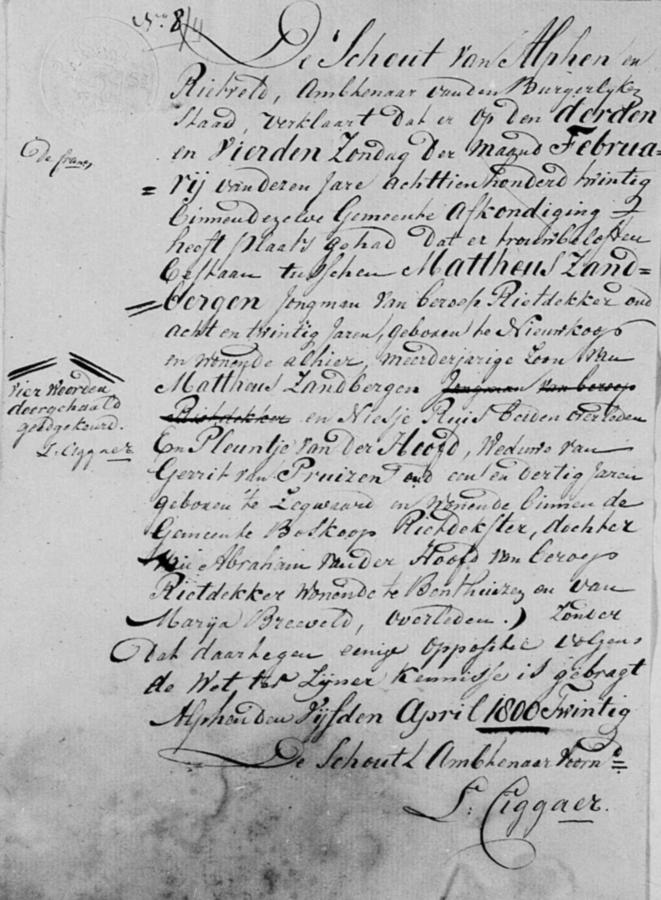 No 8/11
De Schout van Alphen en
Rietveld, Ambtenaar vanden Burgerlyken
Staad, verklaart dat er op den derden
en Vierden Zondag der maand Februa=
=rij van deren Jare achttien honderd twintig
binnen dezelve Gemeente Afkondiging
heeft plaats gehad dat er trouwbeloften
bestaan tusschen Mattheus Zand=
=bergen Jongman van beroep Rietdekker oud
acht en twintig Jaren, geboren te Nieuwkoop
en wonende alhier, meerderjarige Zoon van
Mattheus Zandbergen Jongman van beroep
Rietdekker en Niesje Ruis beiden overleden
En Pleuntje van der Hoofd, Weduwe van
Gerrit van Pruizen oud een en dertig Jaren
geboren te Zegwaard en wonende binnen de
Gemeente Boskoop Rietdekster, dochter
van Abraham vander Hoofd van beroep
Rietdekker wonende te Benthuizen en van
Marya Breeveld, overleden.) Zonder
dat daartegen eenige oppositie volgens
de Wet tot Zyner kennisse is gebragt
Alphen den Vijfden April 1800 Twintig
De Schout & Ambtenaar voorn=d
L: Ciggaer.
de frans
Vier Woorden
doorgehaald
goedgekeurd.
L: Ciggaer